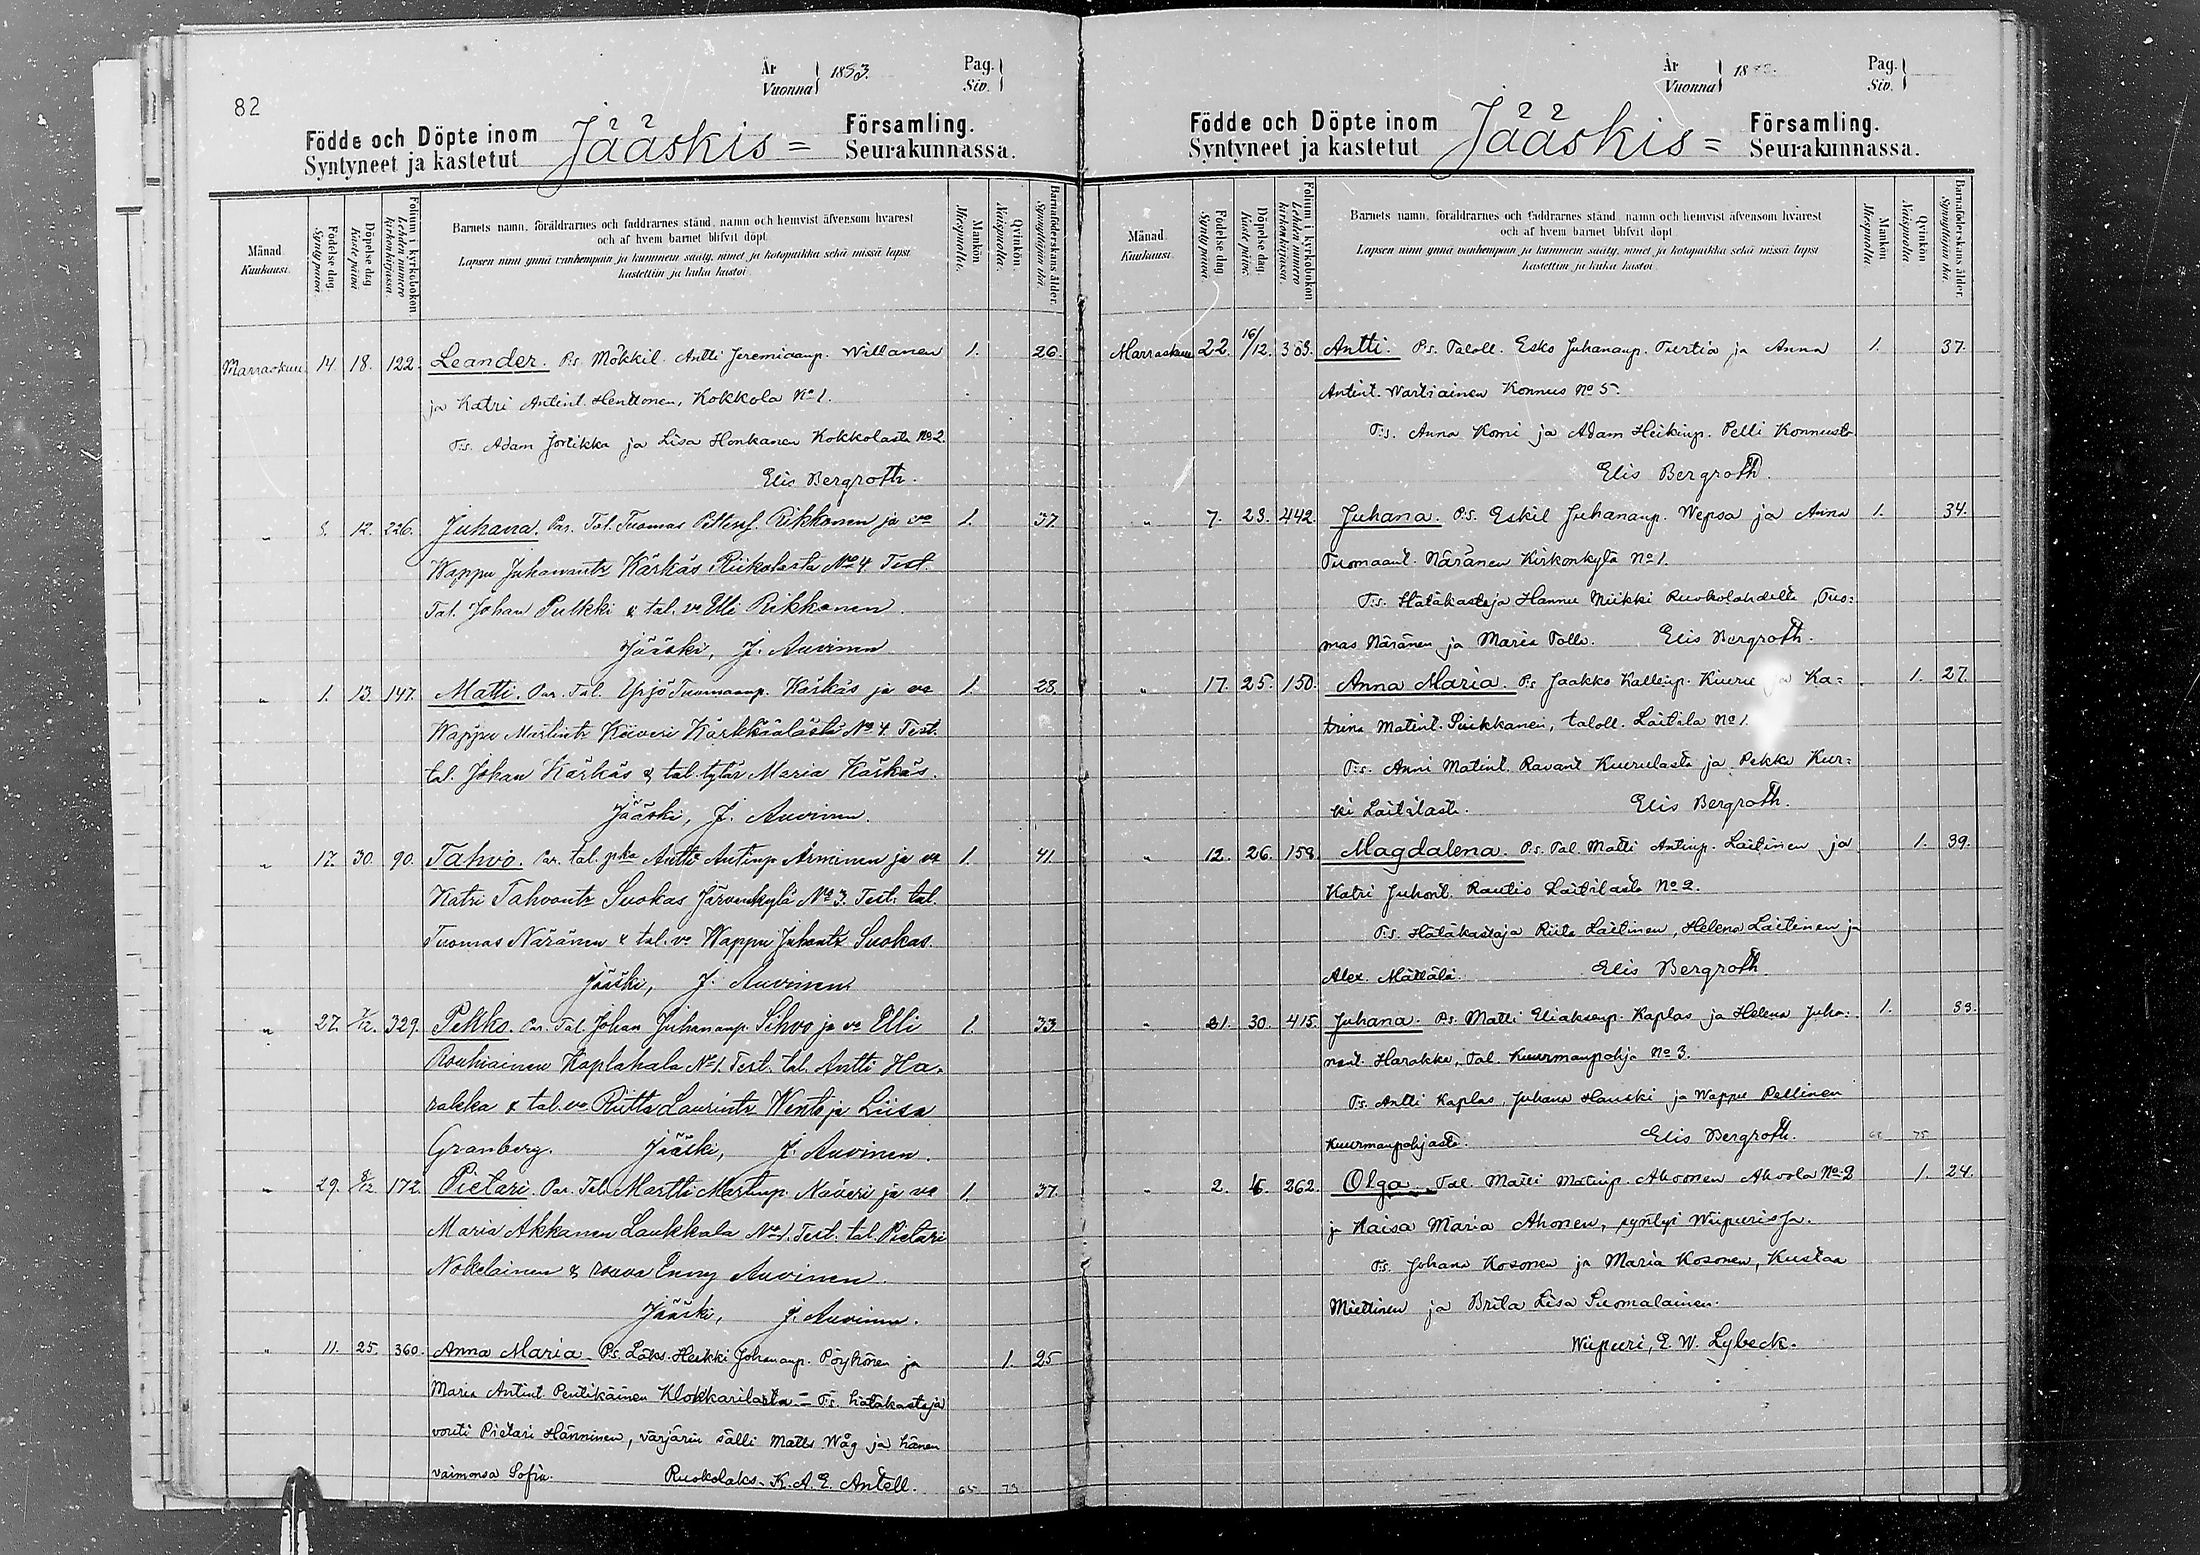 82
År
Vuonna
1883.
Pag.
Siv.
Födde och Döpte inom
Syntyneet ja kastetut
Jääskis =
Församling.
Seurakunnassa.
Månad.
Kuukausi.
Födelse dag.
Synty päivä.
Döpelse dag.
Kaste päivä
Folium i kyrkoboken
Lehden numero kirkonkirjassa
Barnets namn, föräldrarnes och faddrarnes stånd, namn och hemvist äfvensom hvarest
och af hvem barnet blifvit döpt.
Lapsen nimi ynnä vanhempain ja kummein sääty, nimet ja kotopaikka sekä missä lapsi
kastettiin ja kuka kastoi
Mankön.
Miespuolia.
Qvinkön.
Naispuolia.
Barnaföderskans ålder.
Synnyttäjän ikä.
Marraskuu 14. 18. 122. Leander. P:s. Mökkil. Antti Jeremiaanp. Willanen 1. 26.
ja Katri Antint. Henttonen, Kokkola No 1.
T:s. Adam Jortikka ja Lisa Honkanen Kokkolasta No 2.
Elis Bergroth.
" 8. 12. 226. Juhana. Par. Tal. Tuomas Rikkonen ja vo 1. 37.
Wappu Juhanantr Kärkäs Riikolasta No 4 Test.
Tal. Johan Pulkki & tal. vo Elli Rikkonen
Jääski, J. Auvinen
" 1. 13. 147. Matti. Par. Tal. Yrjö Tuomaanp. Kärkäs ja vo 1. 28.
Wappu Martintr Kiiveri Kärkkäälästä No 4 Test.
tal. Johan Kärkäs & tal. tytär Maria Kärkäs.
Jääski, J. Auvinen.
" 17. 30. 90. Tahvo. Par. tal. pka Antti Antinp Arminen ja vo 1. 41.
Katri Tahvontr Suokas Järvenkylä No 3. Test. tal.
Tuomas Näränen & tal. vo Wappu Juhontr Suokas.
Jääski, J. Auvinen
" 27. 329. Pekko. Par. Tal. Johan Juhananp. Sihvo ja vo Elli 1. 33.
Rouhiainen Kaplahala No 1. Test. tal. Antti Ha-
rakka & tal. vo Riitta Laurintr Wento ja Liisa
Granberg. Jääski, J. Auvinen.
" 29. 172. Pietari. Par. Tal. Martti Martinp. Näveri ja vo 1. 37.
Maria Akkanen Laukkala No 1. Test. tal. Pietari
Nokelainen & rouva Enny Auvinen.
Jääski, J. Auvinen.
" 11. 25. 360. Anna Maria P:s. Löks. Heikki Johananp. Pöyhönen ja 1. 25
Maria Antint. Pentikäinen Klokkarilasta = T:s. hätäkastaja
vouti Pietari Hänninen, värjärin sälli Matts Wåg ja hänen
vaimonsa Sofia. Ruokolaks. K. A. E. Antell. 65 73
År
Vuonna
18
Pag.
Siv.
Födde och Döpte inom
Syntyneet ja kastetut
Jääskis =
Församling.
Seurakunnassa.
Månad.
Kuukausi.
Födelse dag.
Synty päivä.
Döpelse dag.
Kaste päivä.
Folium i kyrkoboken
Lehden numero kirkonkirjassa.
Barnets namn, föräldrarnes och faddrarnes stånd, namn och hemvist äfvensom hvarest
och af hvem barnet blifvit döpt.
Lapsen nimi ynnä vanhempain ja kummein sääty, nimet ja kotopaikka sekä missä lapsi
kastettiin ja kuka kastoi.
Mankön
Miespuolia.
Qvinkön.
Naispuolia.
Barnaföderskans ålder.
Synnyttäjän ikä.
Marraskuu 22. 16/12. Antti. P:s. Taloll. Esko Juhananp. Tiertia ja Anna 1. 37.
Antint. Wartiainen Konnus No 5.
T:s. Anna Komi ja Adam Heikinp. Pelli Konnusta
Elis Bergroth.
" 7. 23. 442. Juhana. P:s. Eskil Juhananp. Wepsa ja Anna 1. 34.
Tuomaant. Näränen Kirkonkylä No 1.
T:s. Hätäkastaja Hannu Miikki Ruokolahdelta, Tuo:
mas Näränen ja Maria Tolle. Elis Bergroth.
" 17. 25. 150. Anna Maria. P:s. Jaakko Kallenp. Kuuru ja Ka: 1. 27.
trina Matint. Suikkanen, taloll. Laitila No 1
T:s. Anni Matint. Ravant Kuurulasta ja Pekka Kur:
ki Laitilasta. Elis Bergroth.
" 12. 26. 159. Magdalena. P:s. Tal. Matti Antinp. Laitinen ja 1. 39.
Katri Juhont. Rautio Laitilasta No 2.
T:s. Hätäkastaja Riita Laitinen, Helena Laitinen ja
Alex. Mättälä. Elis Bergroth
" 21. 30. 415. Juhana. P:s. Matti Eliaksenp. Kaplas ja Helena Juha: 1. 33.
nant. Harakka, Tal. Kuurmanpohja No 3.
T:s. Antti Kaplas, Juhana Hanski ja Wappu Pellinen
Kuurmanpohjasta. Elis Bergroth. 75
" 2. 6. 262. Olga. Tal. Matti Matinp. Ahvonen Ahvola No 2 1. 24.
ja Kaisa Maria Ahonen, syntyi Wiipurissa.
T:s. Johana Kosonen ja Maria Kosonen, Kustaa
Miettinen ja Brita Lisa Suomalainen.
Wiipuri, E. W. Lybeck.